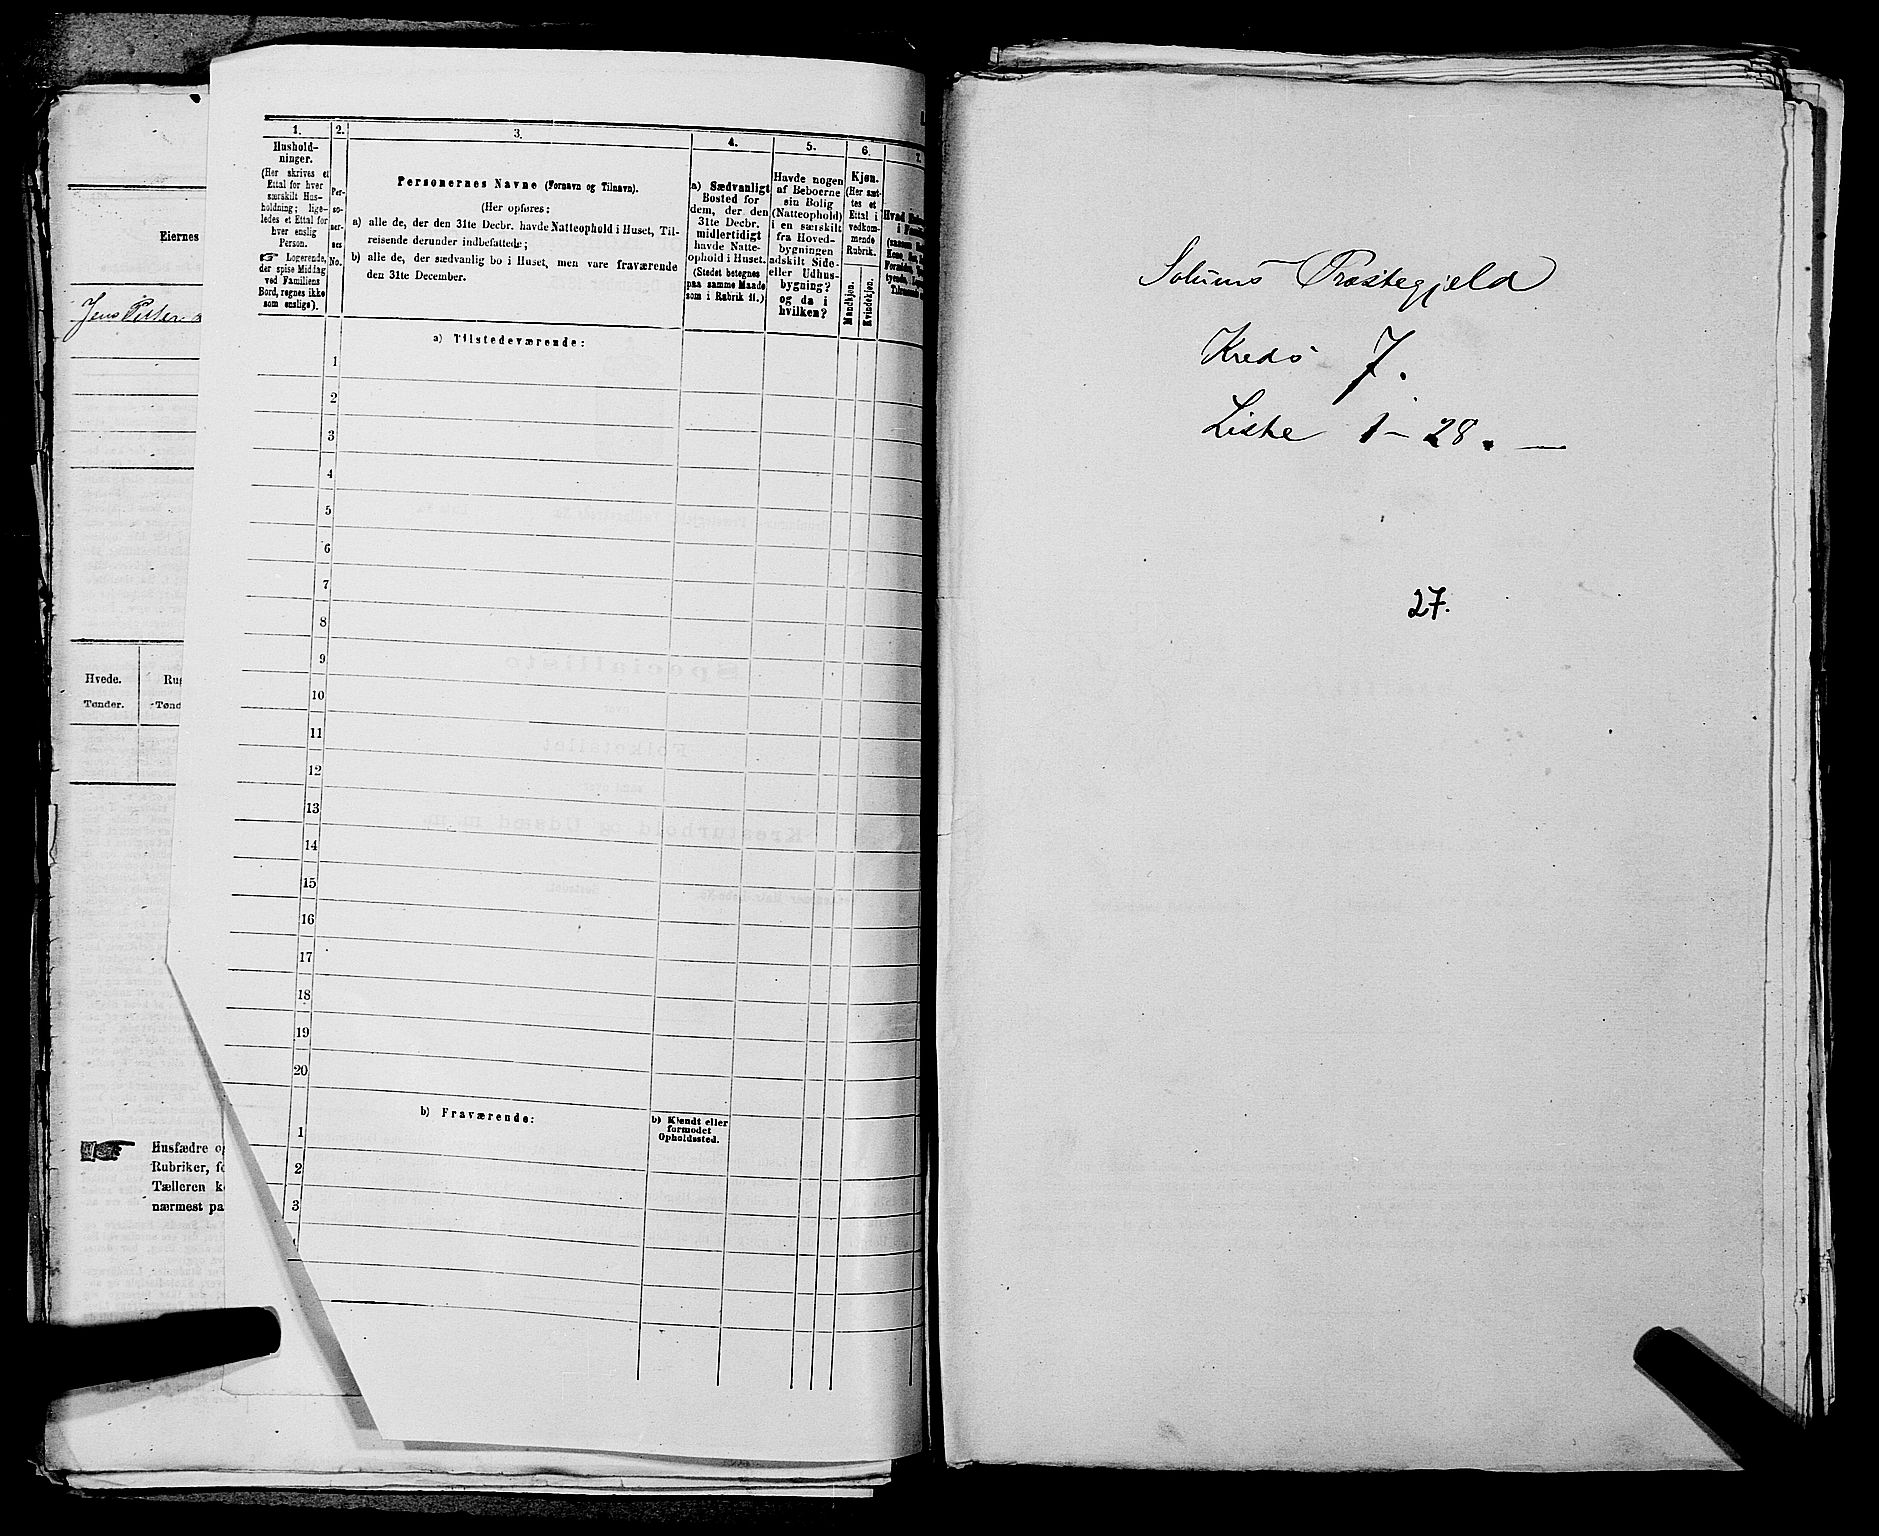 Eiernes
Jens Petter
Hvede.
Tønder.
Husfædre
Rubriker,
Tælleren
nærmest
1.
Hushold-
ninger.
(Her skrives et
Ettal for hver
særskilt Hus-
holdning; lige-
ledes et Ettal for
hver enslig
Person.
☞ Logerende,
der spise Middag
ved Familiens
Bord, regnes ikke
som enslige).
2.
Per-
so-
ner-
nes
No.
3.
Personernes Navne (Fornavn og Tilnavn).
(Her opføres:
a) alle de, der den 31te Decbr. havde Natteophold i Huset, Til-
reisende derunder indbefattede;
b) alle de, der sædvanlig bo i Huset, men vare fraværende
den 31te December.
4.
a) Sædvanligt
Bosted for
dem, der den
31te Decbr.
midlertidigt
havde Natte-
ophold i Huset.
(Stedet betegnes
paa samme Maade
som i Rubrik 11.)
5.
Havde nogen
af Beboerne
sin Bolig
(Natteophold)
i en særskilt
fra Hoved-
bygningen
adskilt Side-
eller Udhus-
bygning?
og da i
hvilken?
6.
Kjøn.
(Her sæt-
tes et
Ettal i
vedkom-
mende
Rubrik.
Mandkjøn.
Kvindekjøn.
7.
a) Tilstedeværende:
1
2
3
4
5
6
7
8
9
10
11
12
13
14
15
16
17
18
19
20
b) Fraværende:
b) Kjendt eller
formodet
Opholdssted.
1
2
3
Solums Præstegjeld
Kreds 7.
Liste 1 – 28. —
27.